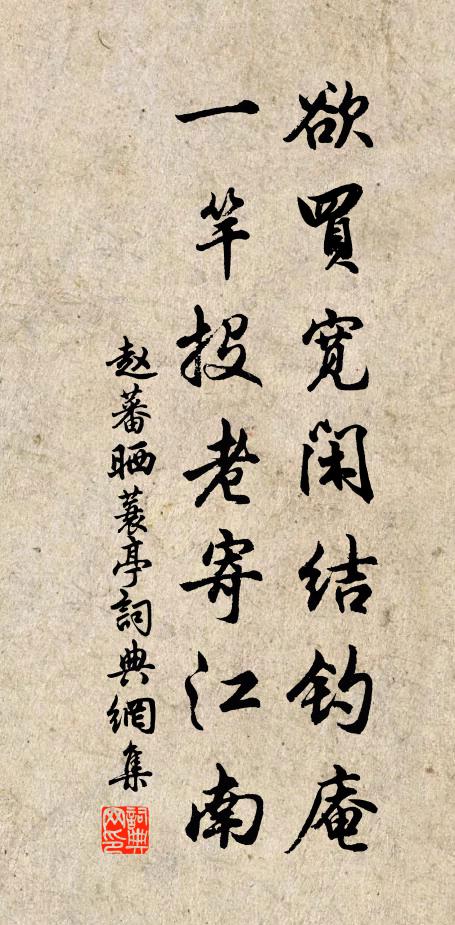 欲買寬閑結釣庵
一竿投老寄江南
赵蕃晒蓑亭詞典網集
詞典
网印